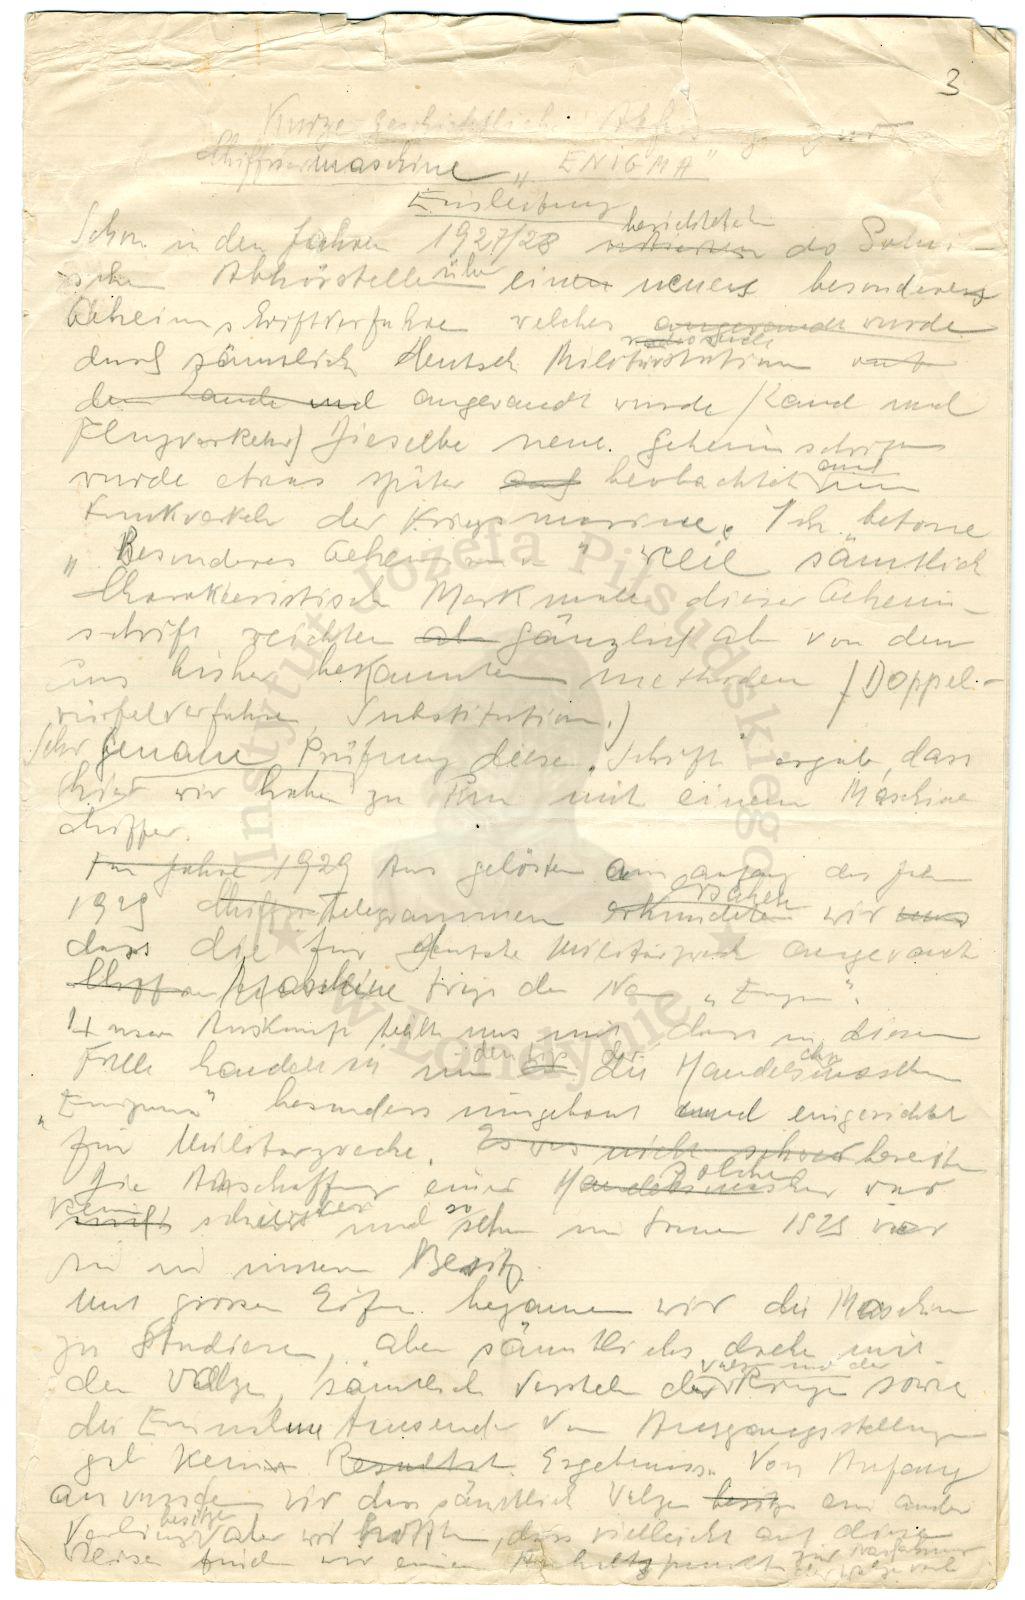 3
Kurze geschichtliche
Chiffriermaschine „ENIGMA"
Einleitung
Schon in den Jahren 1927/28 berichteten do Polni-
schen Abhörstellen über einen neuens besonderes
Geheimschriftverfahren welches angewandt wurde
durch sämtlich Deutsch Militärstation auf
dem Lande und angewandt wurde /Land und
Flugverkehr/ Dieselbe neue Geheimschrift
wurde etwas später auf beobachtet und im
Funkverkeh der Kriegsmarine. Ich betone
„Besonderes Geheim " weil sämtlich
Charakteristisch Merkmale dieser Geheim-
schrift weichten ab gänzlich ab von den
uns bisher bekannten methoden /Doppel-
würfelverfahren, Substitution./
Sehr genaue Prüfung dieser „Schrift" ergab, dass
hier wir haben zu tun mit einem Maschine
Chiffer.
Im Jahre 1929 Aus gelösten am anfang des Jahr
1929 Chiffrier Telegrammen erkundeten ersahen wir uns
dass die für deutsche Militärzweck angewandt
Maschine trägt den Nam „Enigm".
Unser Auskunft teilt uns mit, dass in diesem
Falle handelt sich um die Handelsmaschine
„Enigma" besonders umgebaut und eingerichtet
für Militärzwecke. Es war nicht schwer bereits
Die Anschaffung einer solcher Handelsmaschine war
nicht schwer und so schon im 1929 war
sie in unserem Besitz.
Mit grossen Eifer begannen wir die Maschin
zu Studieren, aber sämtliches drehe mit
den Walzen, sämtlich Verstellen der Ringe sowie
die Einnahme tausender von Ausgangsstellungen
gab keine Resultat. Ergebnisse. Von Anfang
an wussten wir dass sämtlich Walzen besitze ein ander
besitzen aber wir hofften, dass vielleicht auf diese
Weise finden wir einen Anhaltspunkt
Instytut Józefa Piłsudskiego w Londynie